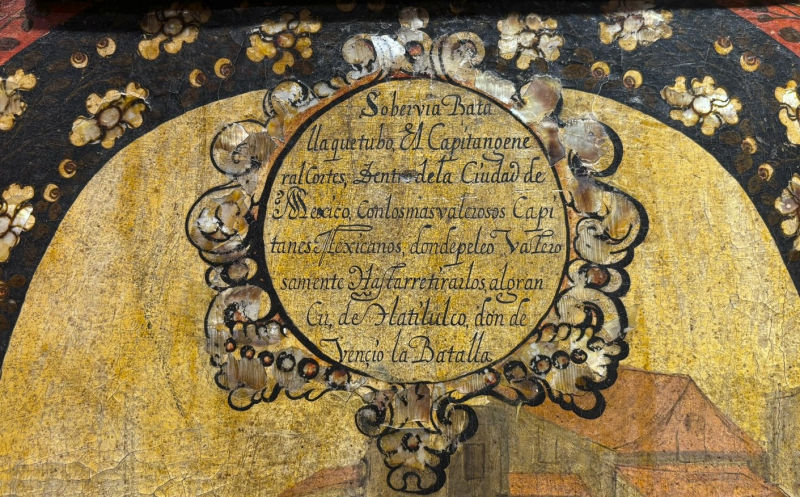 Sobervia Bata
lla quetubo, El Capitan gene
ral Cortes, Dentro dela Ciudad de
Mexico, conlosmas valerosos Capi
tanes Mexicanos, donde peleo Valero
samente Hastarretirarlos, algran
Cu, de Tlatilulco, don de
Vencio la Batalla